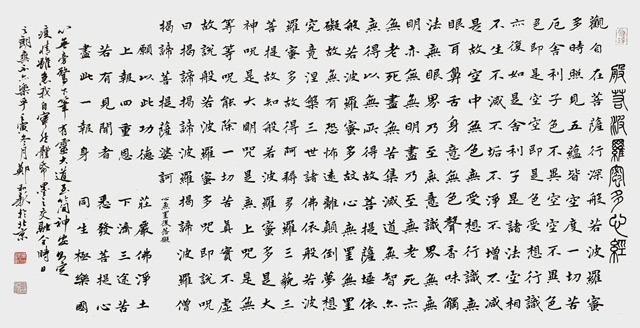 般若波羅蜜多心經
觀自在菩薩行深般若波羅蜜
多時照見五蘊皆空度一切苦
厄舍利子色不異空空不異色
色即是空空即是色受想行識
亦復如是舍利子是諸法空相
不生不滅不垢不淨不增不減
是故空中無色無受想行識無
眼耳鼻舌身意無色聲香味觸
法無眼界乃至無意識界無無
明亦無無明盡乃至無老死亦
無老死盡無苦集滅道無智亦
無得以無所得故菩提薩埵依
般若波羅蜜多故心無罣礙無罣
礙故無有恐怖遠離顛倒夢想
究竟涅槃三世諸佛依般若波
羅蜜多故得阿耨多羅三藐三
菩提故知般若波羅蜜多是大
神咒是大明咒是無上咒是無
等等咒能除一切苦真實不虛
故說般若波羅蜜多咒即說咒
曰揭諦揭諦波羅揭諦波羅僧
揭諦菩提薩婆訶
願以此功德 莊嚴佛淨土
上報四重恩 下濟三途苦
若有見聞者 悉發菩提心
盡此一報身 同生極樂國